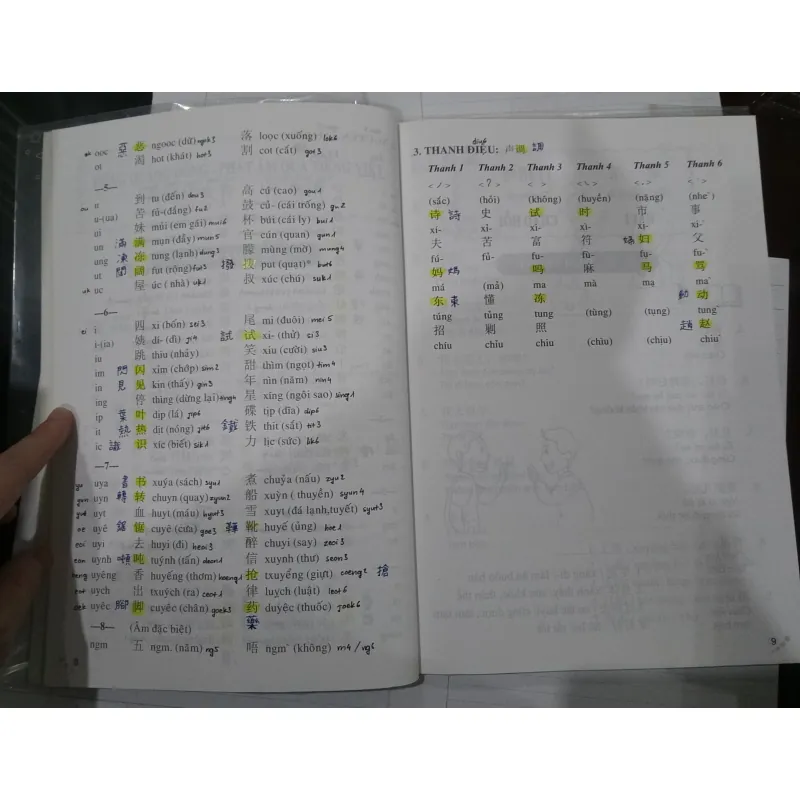 ok ooc 惡 恶 ngooc (dữ) ngok3 落 loọc (xuống) lok6
ot 渴 hot (khát) hot3 割 cot (cắt) got3
—5—
ou u 到 tu (đến) dou3 高 cú (cao) gou1
u-(ua) 苦 fủ-(đắng) fu2 鼓 củ- (cái trống) gu2
ui 妹 mùi (em gái) mui6 杯 búi (cái ly) bui1
un 滿 满 mụn (đầy) mun5 官 cún (quan) gun1
ung 凍 冻 tung (lạnh) dung3 朦 mùng (mờ) mung4
ut 闊 阔 fut (rộng) fut3 撥 拨 put (quạt)* but6
uk uc 屋 úc (nhà) uk1 叔 xúc (chú) suk1
—6—
ei i 四 xi (bốn) sei3 尾 mi (đuôi) mei5
i-(ia) 姨 dì- (dì) ji4 試 试 xi- (thử) si3
iu 跳 thiu (nhảy) 笑 xiu (cười) siu3
im 閃 闪 xỉm (chớp) sim2 甜 thìm (ngọt) tim4
in 見 见 kin (thấy) gin3 年 nìn (năm) nin4
ing 停 thìng (dừng lại) ting4 星 xíng (ngôi sao) sing1
ip 葉 叶 dịp (lá) jip6 碟 tịp (dĩa) dip6
it 熱 热 dịt (nóng) jit6 鐵 铁 thit (sắt) tit3
ic 識 识 xíc (biết) sik1 力 lịc (sức) lik6
—7—
uya 書 书 xuýa (sách) syu1 煮 chuỷa (nấu) zyu2
uyn 轉 转 chuyn (quay) zyun2 船 xuỳn (thuyền) syun4
uyt 血 huyt (máu) hyut3 雪 xuyt (đá lạnh,tuyết) syut3
oe uyê 鋸 锯 cuyê (cưa) goe3 靴 huyế (ủng) hoe1
eoi uyi 去 huyi (đi) heoi3 醉 chuyi (say) zeoi3
eon uynh 噸 吨 tuýnh (tấn) deon1 信 xuynh (thư) seon3
oeng uyêng 香 huyếng (thơm) hoeng1 抢 txuyểng (giựt) coeng2 搶
eot uych 出 txuých (ra) ceot1 律 luỵch (luật) leot6
oek uyêc 腳 脚 cuyêc (chân) goek3 药 duyệc (thuốc) joek6
藥
—8— (Âm đặc biệt)
ngm 五 ngm. (năm) ng5 唔 ngm` (không) m4 / ng6
8
diu6
3. THANH ĐIỆU: 声调 調
Thanh 1 Thanh 2 Thanh 3 Thanh 4 Thanh 5 Thanh 6
< / > < ? > < > < \ > < . > < ` >
(sắc) (hỏi) (không) (huyền) (nặng) (nhẹ`)
诗 詩 史 试 时 市 事
xí- xỉ- xi- xì- xị- xi-`
夫 苦 富 符 婦 妇 父
fú- fủ- fu- fù- fụ- fu-`
妈 媽 吗 麻 马 骂
má (mả) ma mà mạ ma`
东 東 懂 冻 動 动
túng tủng tung (tùng) (tụng) tung`
招 剿 照 趙 赵
chíu chỉu chiu (chìu) (chịu) chiu`
9